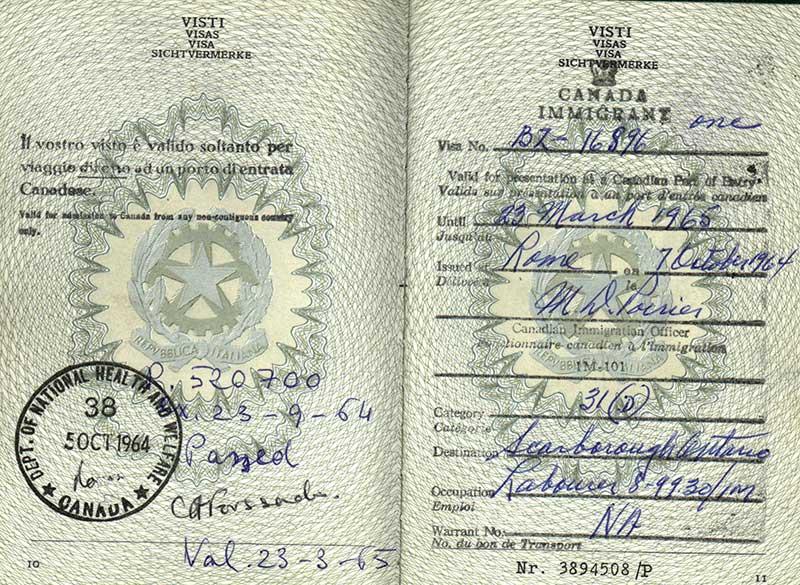 VISTI
VISAS
VISA
SICHTVERMERKE
Il vostro visto è valido soltanto per
viaggio diretto ad un porto di entrata
Canadese.
Valid for admission to Canada from any non-contiguous country
only.
REPVBBLICA ITALIANA
DEPT. OF NATIONAL HEALTH AND WELFARE
38
5 OCT 1964
CANADA
R. 520700
X. 23-9-64
Passed
Val. 23-3-65
10
VISTI
VISAS
VISA
SICHTVERMERKE
CANADA
IMMIGRANT
one
Visa No. BZ-16896
Valid for presentation at a Canadian Port of Entry
Valida sur présentation à un port d'entrée canadien
Until 23 March 1965
Jusqu'au
Issued at Rome on 7 October 1964
Délivré à le
M D. Poirier
Canadian Immigration Officer
Fonctionnaire canadien à l'immigration
IM-101
Category 31(D)
Catégorie
Destination Scarborough Ontario
Occupation Labourer 8-9930/im
Emploi
Warrant No. NA
No. du bon de Transport
Nr. 3894508/P
11